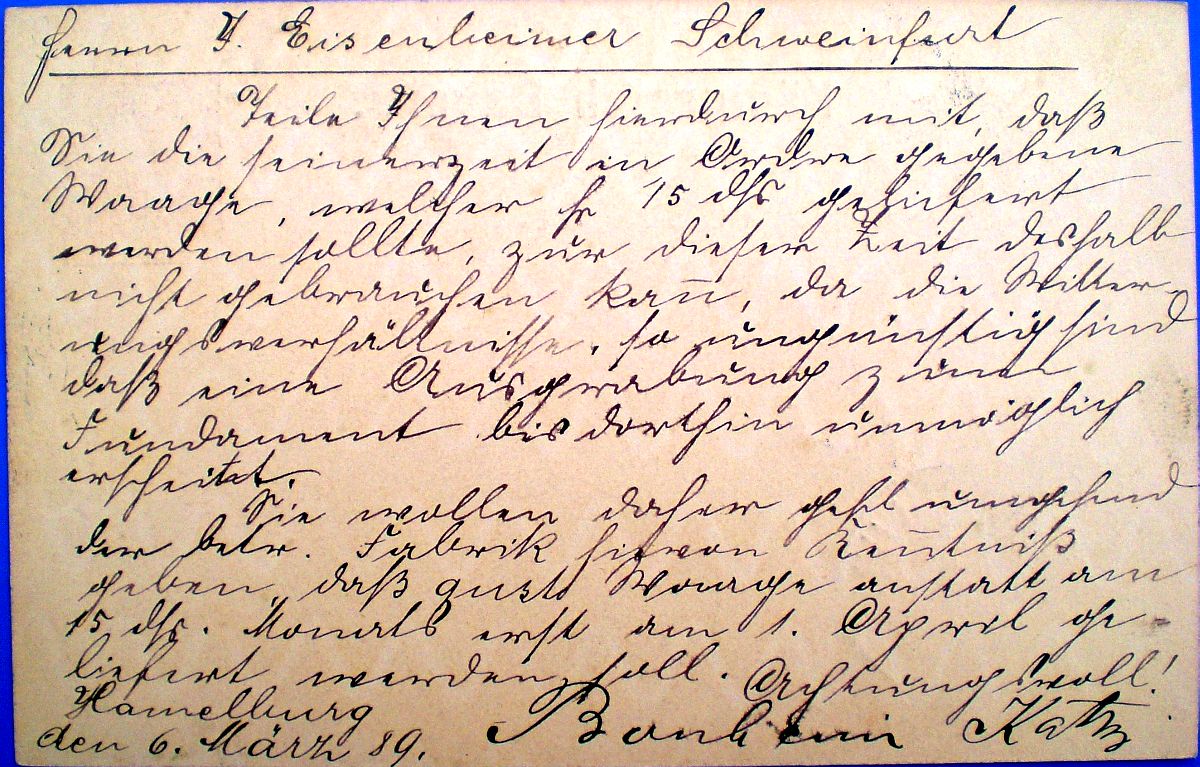 Herrn J. Eisenheimer Schweinfurt
Teile Ihnen hierdurch mit, daß
Sie die seinerzeit in Ordre gegebene
Waage, welcher 15 dſs geliefert
werden sollte, zur dieser Zeit deshalb
nicht gebrauchen kan̅, da die Witter-
ungsverhältnisse, so ungünstig sind
daß eine Ausgrabung zum
Fundament bis dorthin unmöglich
erscheint.
Sie wollen daher gefl umgehend
der betr. Fabrik hievon Ken̅tniß
geben, daß Waage anstatt am
15 dſs. Monats erst am 1. April ge-
liefert werden soll. Achtungsvoll!
Hamelburg
den 6. März 89. Katz